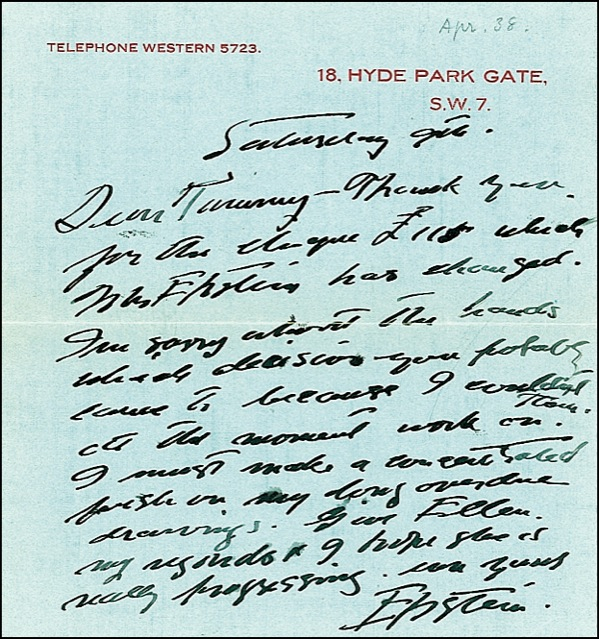 Apr. 38.
TELEPHONE WESTERN 5723.
18, HYDE PARK GATE,
S.W. 7.
Saturday 9th.
Dear Tammy – Thank you
for the cheque £115 which
Mrs Epstein has changed.
I'm sorry about the hands
which decision you probably
came to because I couldn't
at the moment work on them.
I must make a concentrated
push on my long overdue
drawings. Give Ellen
my regards & I hope she is
really progressing. yours
Epstein.